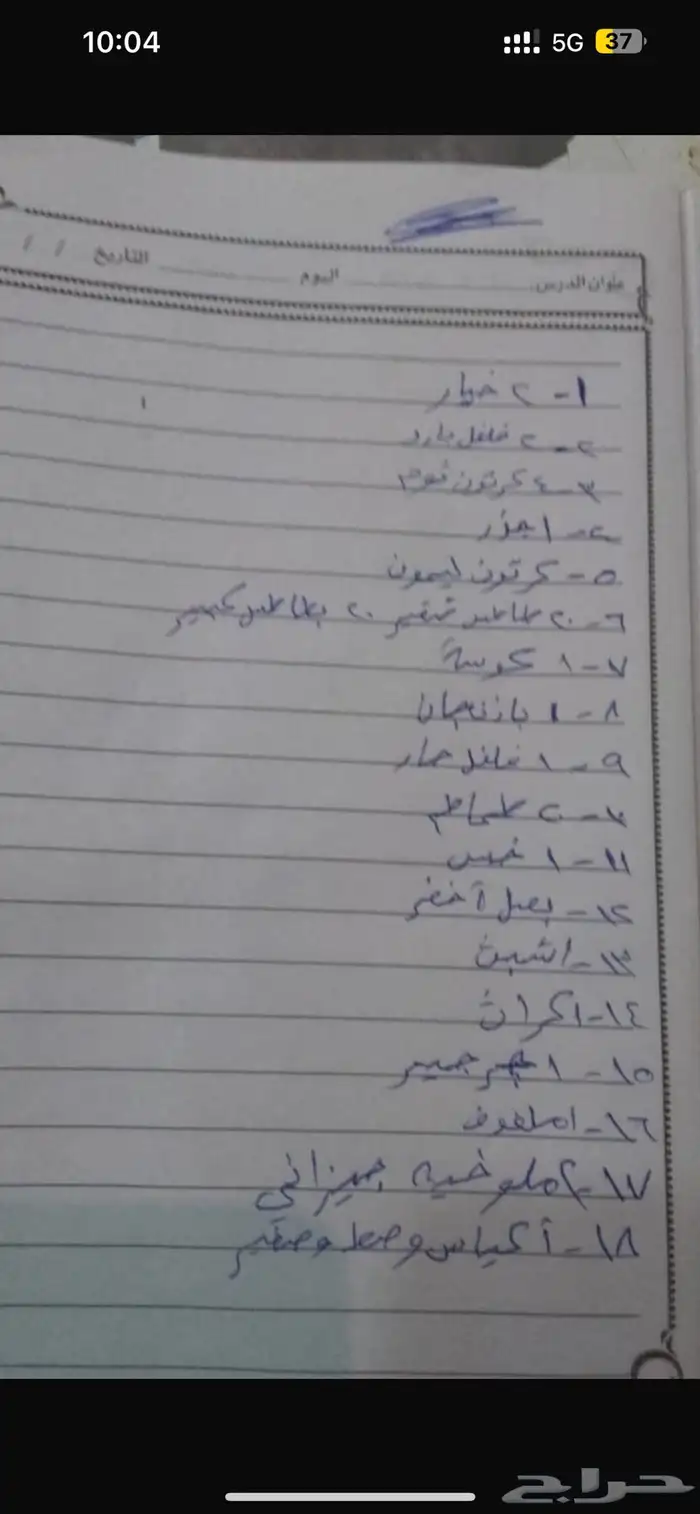 10:04 5G 37
عنوان الدرس اليوم التاريخ / /
١- ٢ خيار
٢- ٢ فلفل بارد
٣- ٤ كرتون ثوم
٤- ١ جزر
٥- كرتون ليمون
٦- ٢٠ بطاطس صغير ٢٠ بطاطس كبير
٧- ١ كوسة
٨- ١ باذنجان
٩- ١ فلفل حار
١٠- ٢ طماطم
١١- ١ خس
١٢- بصل أخضر
١٣- ١ شبث
١٤- ١ كراث
١٥- ١ جرجير
١٦- ١ ملفوف
١٧- ٢ ملوخيه جيزاني
١٨- أكياس وصط وصغير
حراج